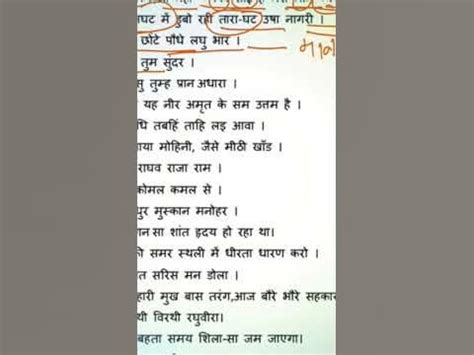 घट में डुबो रही तारा-घट उषा नागरी ।
छोटे पौधे लघु भार ।
तुम सुंदर ।
सु तुम्ह प्रान अधारा ।
यह नीर अमृत के सम उत्तम है ।
धि तबहिं ताहि लइ आवा ।
ाया मोहिनी, जैसे मीठी खाँड ।
राघव राजा राम ।
कोमल कमल से ।
पुर मुस्कान मनोहर ।
ान सा शांत हृदय हो रहा था।
की समर स्थली में धीरता धारण करो ।
त सरिस मन डोला ।
हारी मुख बास तरंग,आज बौरे भौरे सहकार
थी विरथी रघुवीरा।
बहता समय शिला-सा जम जाएगा।